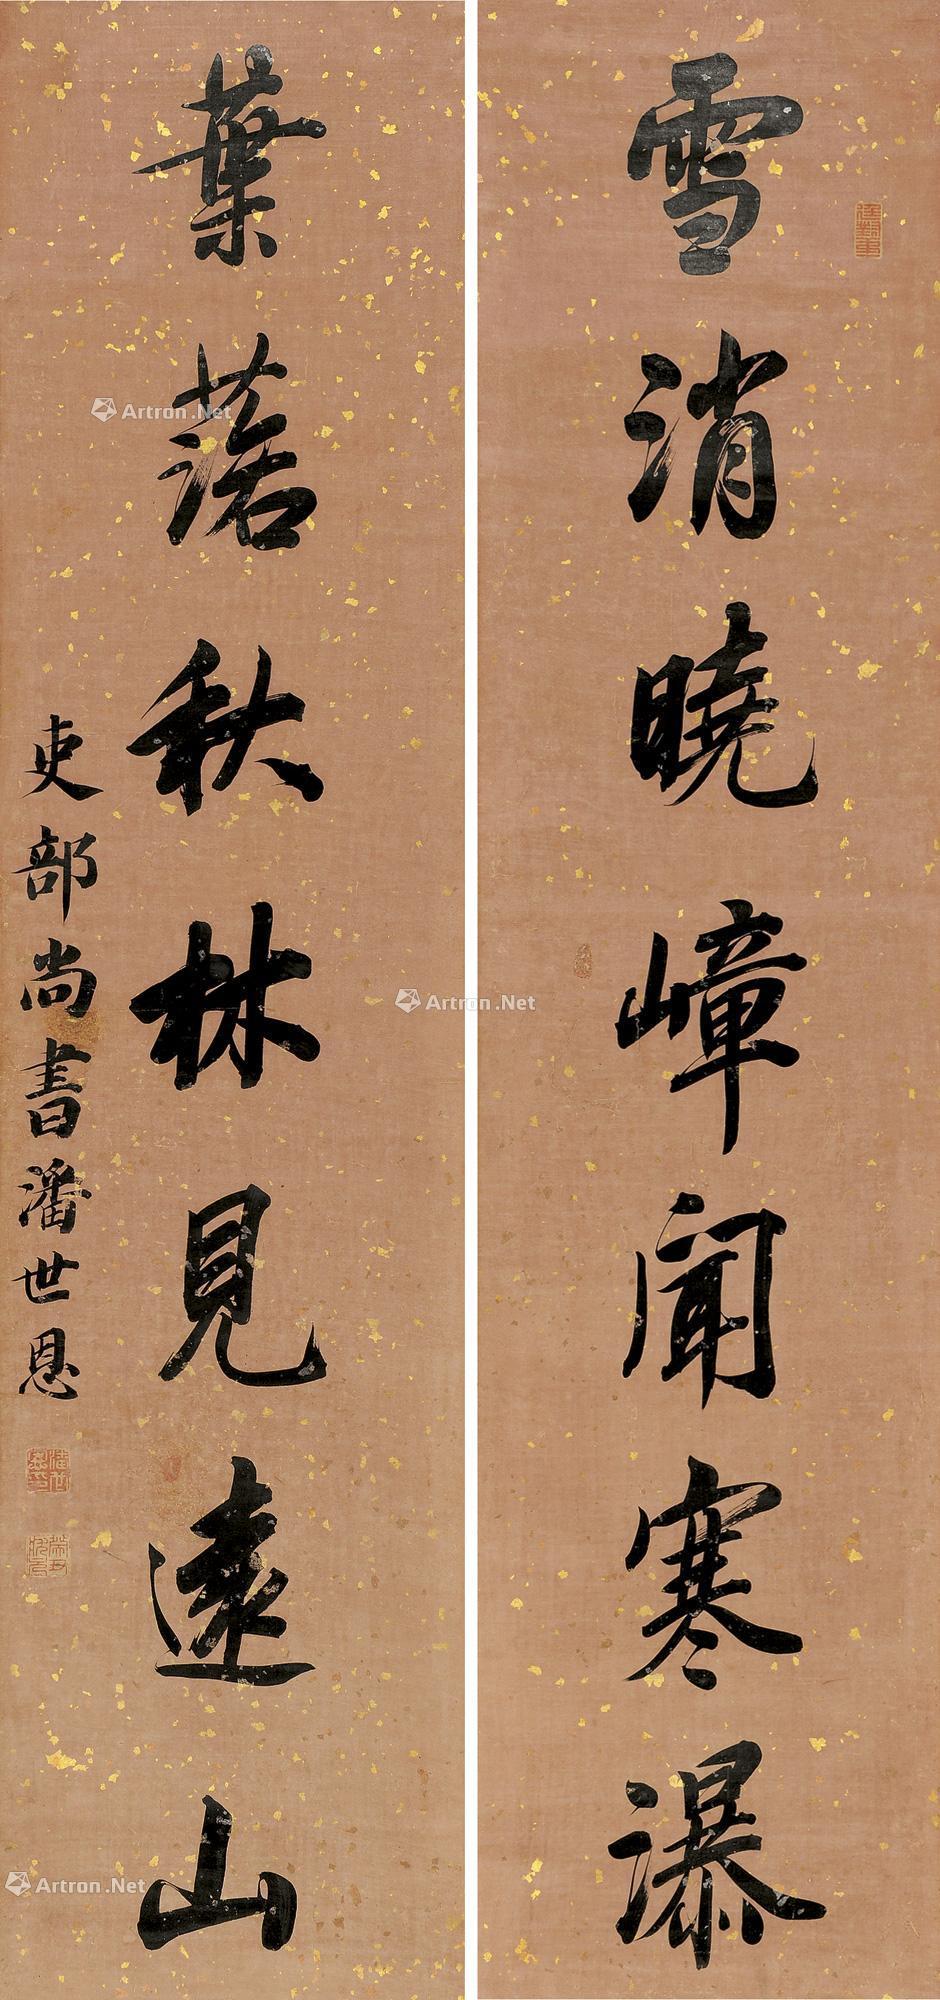 雪消曉嶂聞寒瀑
葉落秋林見遠山
吏部尚書潘世恩
Artron.Net
Artron.Net
Artron.Net